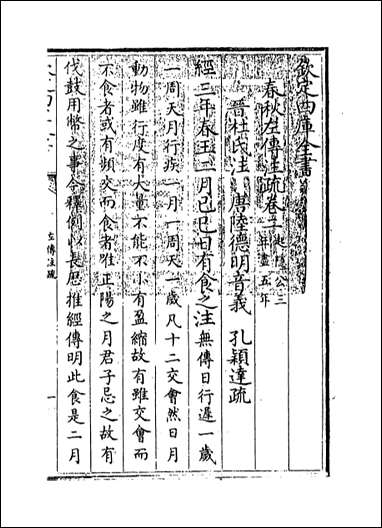 欽定四庫全書
春秋左傳注疏卷二 起隱公三年盡五年
晉杜氏注 唐陸德明音義 孔穎達疏
經三年春王二月己巳日有食之注無傳日行遲一歲
一周天月行疾一月一周天一歲凡十二交會然日月
動物雖行度有大量不能不小有盈縮故有雖交會而
不食者或有頻交而食者唯正陽之月君子忌之故有
伐鼓用幣之事今釋例以長厯推經傳明此食是二月
左傳注疏
一